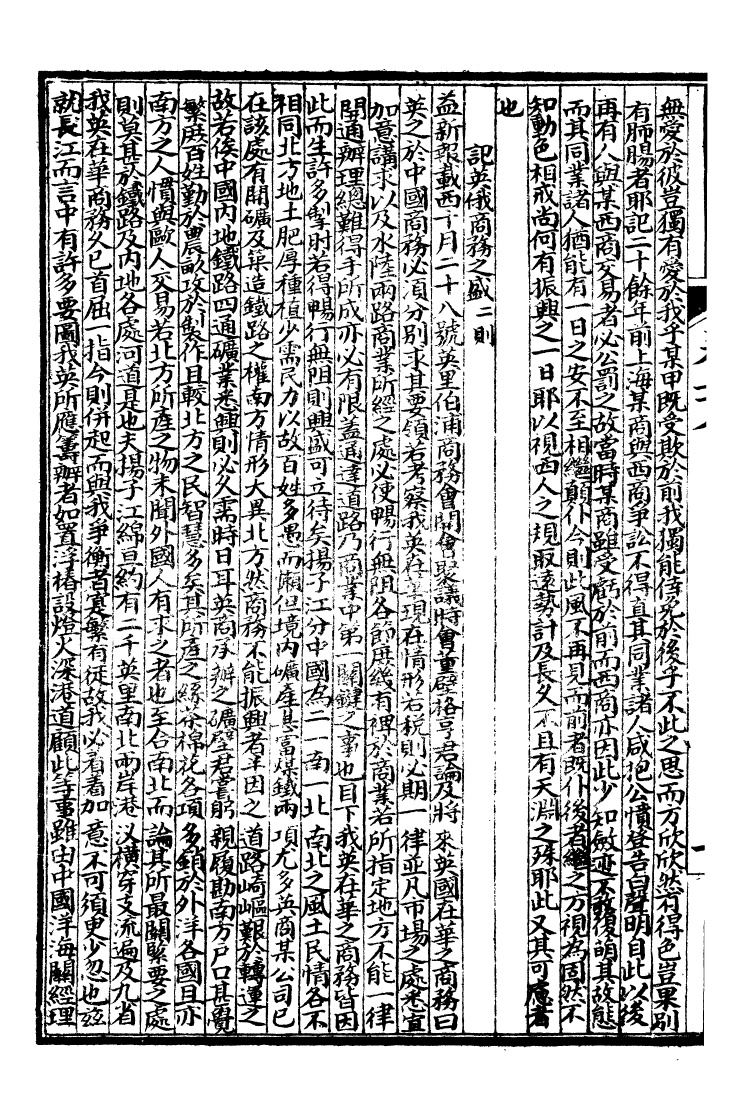 無愛於彼豈獨有愛於我乎某甲既受欺於前我獨能倖免於後乎不此之思而方欣欣然有得色豈果別
有肺腸者耶記二十餘年前上海某商與西商爭訟不得直其同業諸人咸抱公憤登告白聲明自此以後
再有人與某西商交易者必公罰之故當時某商雖受虧於前而西商亦因此少知斂迹不敢復萌其故態
而其同業諸人猶能有一日之安不至相繼顛仆今則此風不再見而前者既仆後者繼之方視為固然不
知動色相戒尚何有振興之一日耶以視西人之規取遠勢計及長久不且有天淵之殊耶此又其可慮者
也
記英俄商務之盛二則
益新報載西十月二十八號英里伯浦商務會開會聚議時會董壁格亨君論及將來英國在華之商務曰
英之於中國商務必須分別求其要領若考察我英在華現在情形若稅則必期一律並凡市場之處悉宜
加意講求以及水陸兩路商業所經之處必使暢行無阻各節庶幾有裨於商業若所指定地方不能一律
開通辦理總難得手所成亦必有限蓋通達道路乃商業中第一關鍵之事也目下我英在華之商務皆因
此而生許多掣肘若得暢行無阻則興盛可立待矣揚子江分中國為二一南一北南北之風土民情各不
相同北方地土肥厚種植少需民力以故百姓多愚而懶但境內礦產甚富煤鐵兩項尤多英商某公司已
在該處有開礦及築造鐵路之權南方情形大異北方然商務不能振興者半因之道路崎嶇艱於轉運之
故若俟中國內地鐵路四通礦業悉興則必久需時日耳英商承辦之礦壁君嘗躬親履勘南方戶口甚覺
繁庶百姓勤於農畝攻於製作且較北方之民智慧多矣其所產之絲茶棉花各項多銷於外洋各國且亦
南方之人慣與歐人交易若北方所產之物未聞外國人有求之者也至合南北而論其所最關緊要之處
則莫甚於鐵路及內地各處河道是也夫揚子江綿亘約有二千英里南北兩岸港汊橫穿支流遍及九省
我英在華商務久已首屈一指今則併起而與我爭衡者寔繁有徒故我必看看加意不可須更少忽也茲
就長江而言中有許多要圖我英所應籌辦者如置浮樁設燈火深港道顧此等事雖由中國洋海關經理